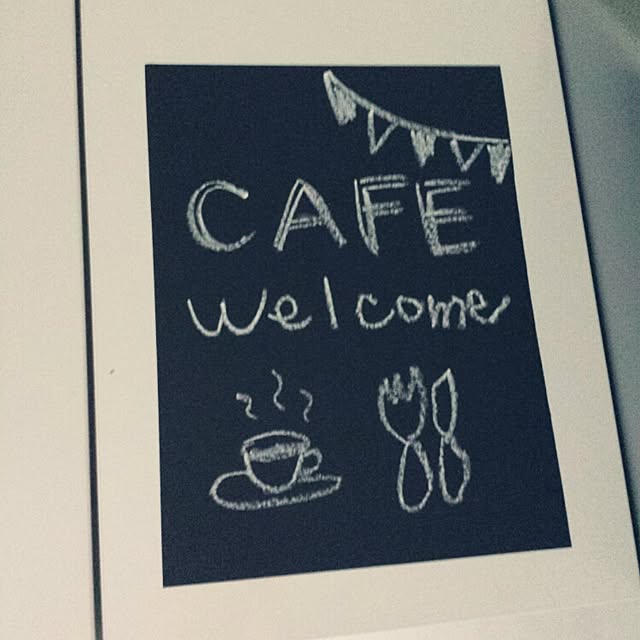 CAFE
Welcome